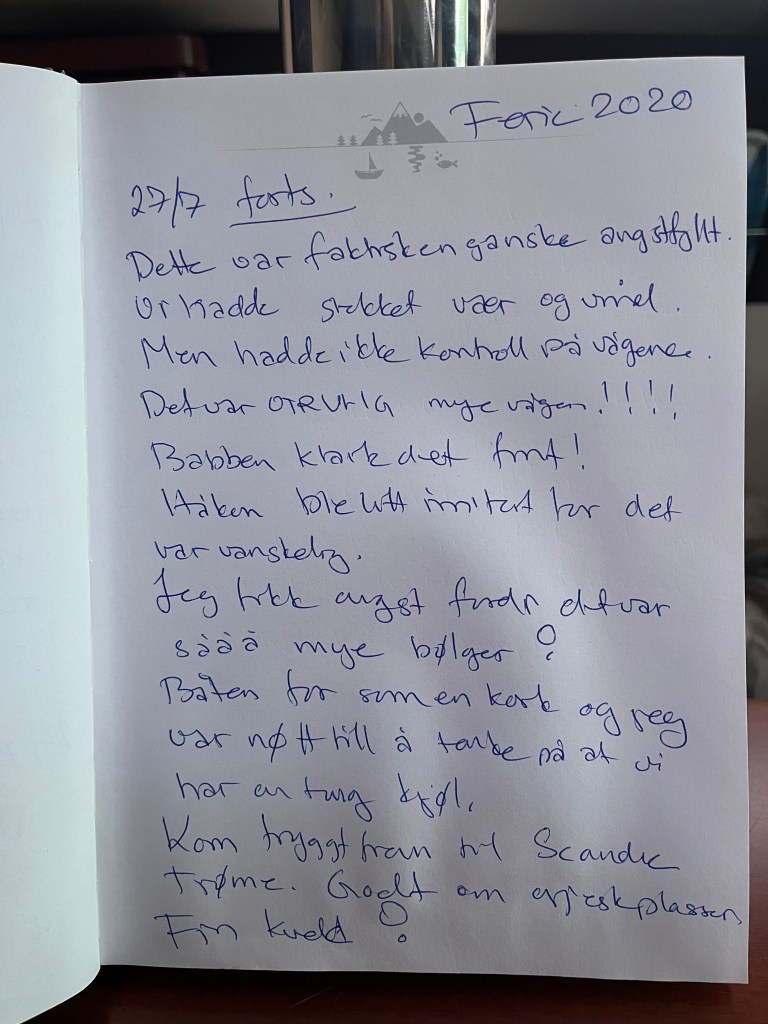 Ferie 2020
27/7 forts.
Dette var faktisken ganske angstfyllt.
Vi hadde sjekket vær og vind.
Men hadde ikke kontroll på vågene.
Det var OTRULIG mye vågen!!!!
Babben klarte det fint!
Håken ble litt irritert for det
var vanskelig.
Jeg fikk angst fordi det var
sååå mye bølger!
Båten for som en kork og jeg
var nøtt till å tenke på at vi
har en tung kjøl.
Kom tryggt fram til Scandic
Trøme. Godt om gjesteplasser,
Fin kveld!